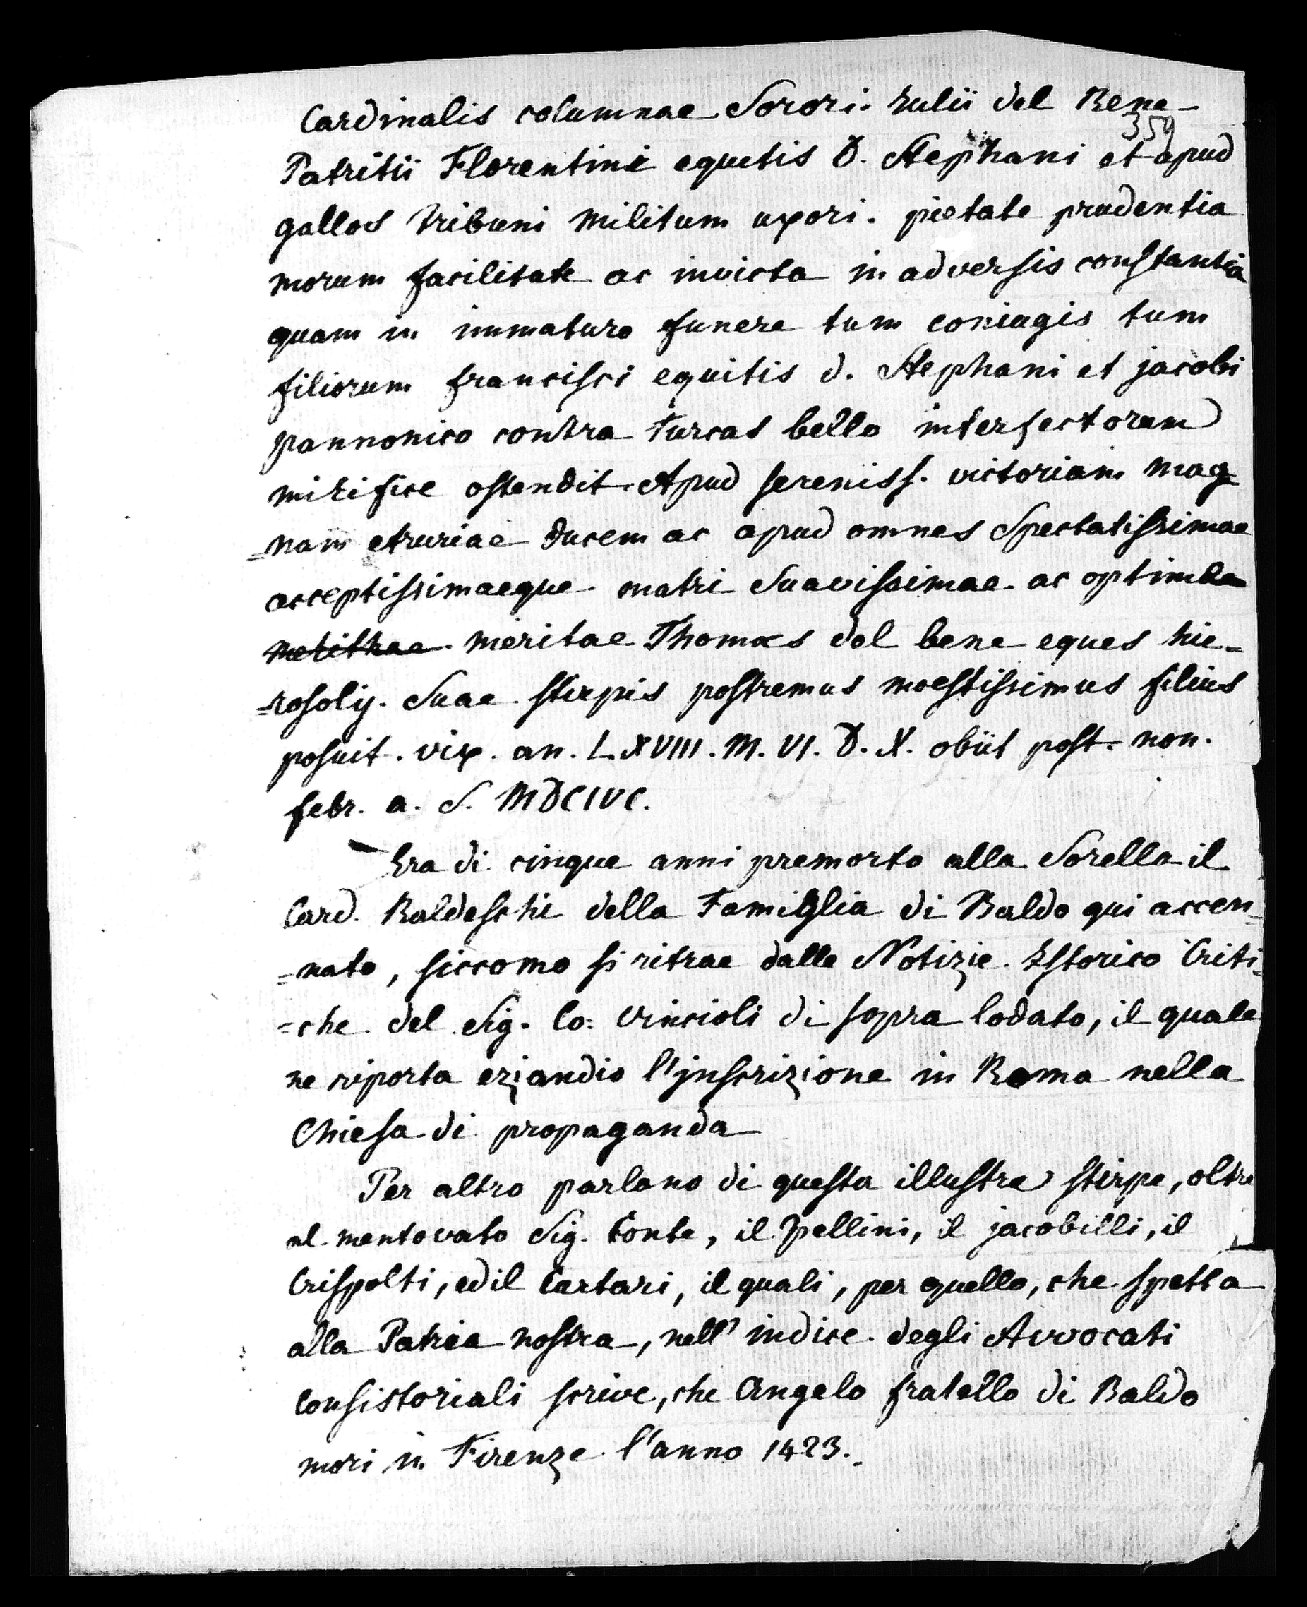 Cardinalis columnae Sorori. Iulii del Bene
359
Patritii Florentini equitis D. Stephani et apud
gallos tribuni militum uxori. pietate prudentia
morum facilitate ac invicta in adversis constantia
quam in immaturo funere tum coniugis tum
filiorum francisci equitis d. Stephani et jacobi
pannonico contra Turcas bello interfectorum
mirifice ostendit. Apud sereniss. victoriam mag
=nam etruriae ducem ac apud omnes Spectatissimae
acceptissimaeque matri Suavissimae ac optimae
merithae meritae Thomas del bene eques hie=
=rosoly. Suae stirpis postremus moestissimus filius
posuit. vix. an. LXVIII. M. VI. D. X. obiit post. non.
febr. a. S. MDCIVC.
Era di cinque anni premorto alla Sorella il
Card. Baldeschi della Famiglia di Baldo qui accen=
=nato, siccome si ritrae dalle Notizie Istorico Criti=
=che del Sig. Co: Vincioli di sopra lodato, il quale
ne riporta eziandio l'jnscrizione in Roma nella
Chiesa di propaganda
Per altro parlano di questa illustre stirpe, oltre
al mentovato Sig. Conte, il Pellini, il jacobilli, il
Crispolti, ed il Cartari, il quali, per quello, che spetta
alla Patria nostra, nell' indice degli Avvocati
Consistoriali scrive, che Angelo fratello di Baldo
mori in Firenze l'anno 1423.